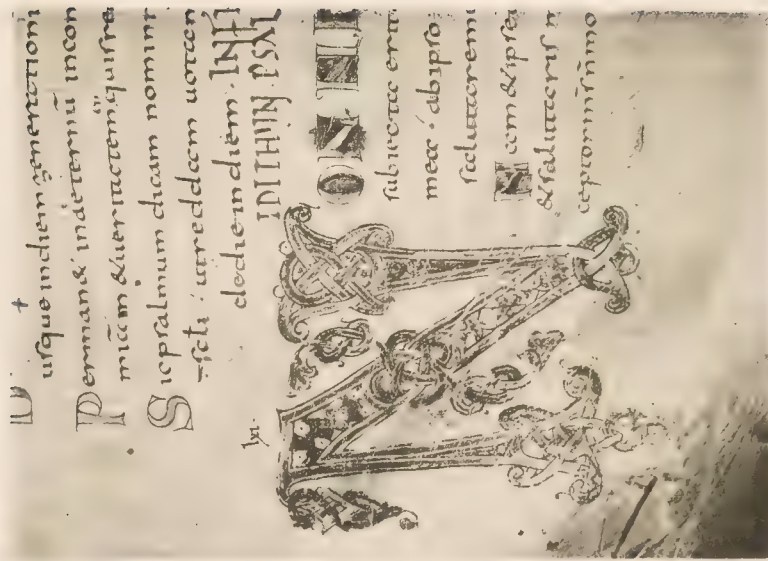 usque indiem generationi
Perman& in æternũ incon
miãm & ueritatem quisre
Sic psalmum dicam nomini
scli · ut reddam uota m
dedie indiem · IN FI
IDITHUN PSAL
lxi·
N
subiecta eri
mea · abipso
salutaremeu
am & ipse
& salutaris m
ceptor m̃s nõmo